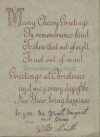 Many Cheery Greetings
In remembrance kind
To show that out of sight
Is not out of mind.
Greetings at Christmas
and may every day of the
New Year bring happiness
to you